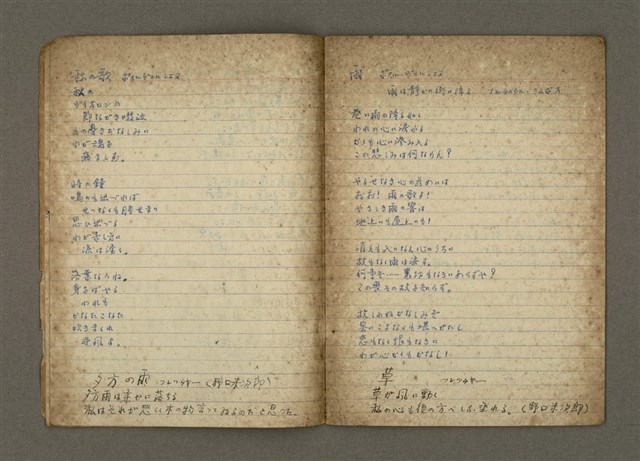 秋の歌 ポオル・ヴェルレエヌ
秋の
ヴィオロンの
節ながき啜泣
もの憂きかなしみに
わが魂を
痛ましむ。
時の鐘
鳴りも出づれば
せつなくも胸せまり
思ひ出づる
わが来し方に
涙は湧く。
落葉ならね。
身をばやる
われも
かなたこなた
吹きまくれ
逆風よ。
夕方の雨 フレツチヤー (野口米次郎)
夕方雨は柔かに落ちる
雨 ポオル・ヴェルレエヌ
雨は静かに街に降る
巷に雨の降る如く
われの心に涙ふる
かくも心に滲み入る
この悲しみは何ならん?
やるせなき心の為めには
おお! 雨の歌よ!
やさしき雨の響は
地上にも屋上にも!
消えも入りなん心のうちに
故もなく雨は涙す。
何事ぞ……裏切もなきにあらずや?
この喪その故を知らず。
故しれぬかなしみぞ
げにこよなくも堪へがたし
恋もなく恨もなきに
わが心かくもかなし!
草 フレツチヤー
草が風に動く
(野口米次郎)